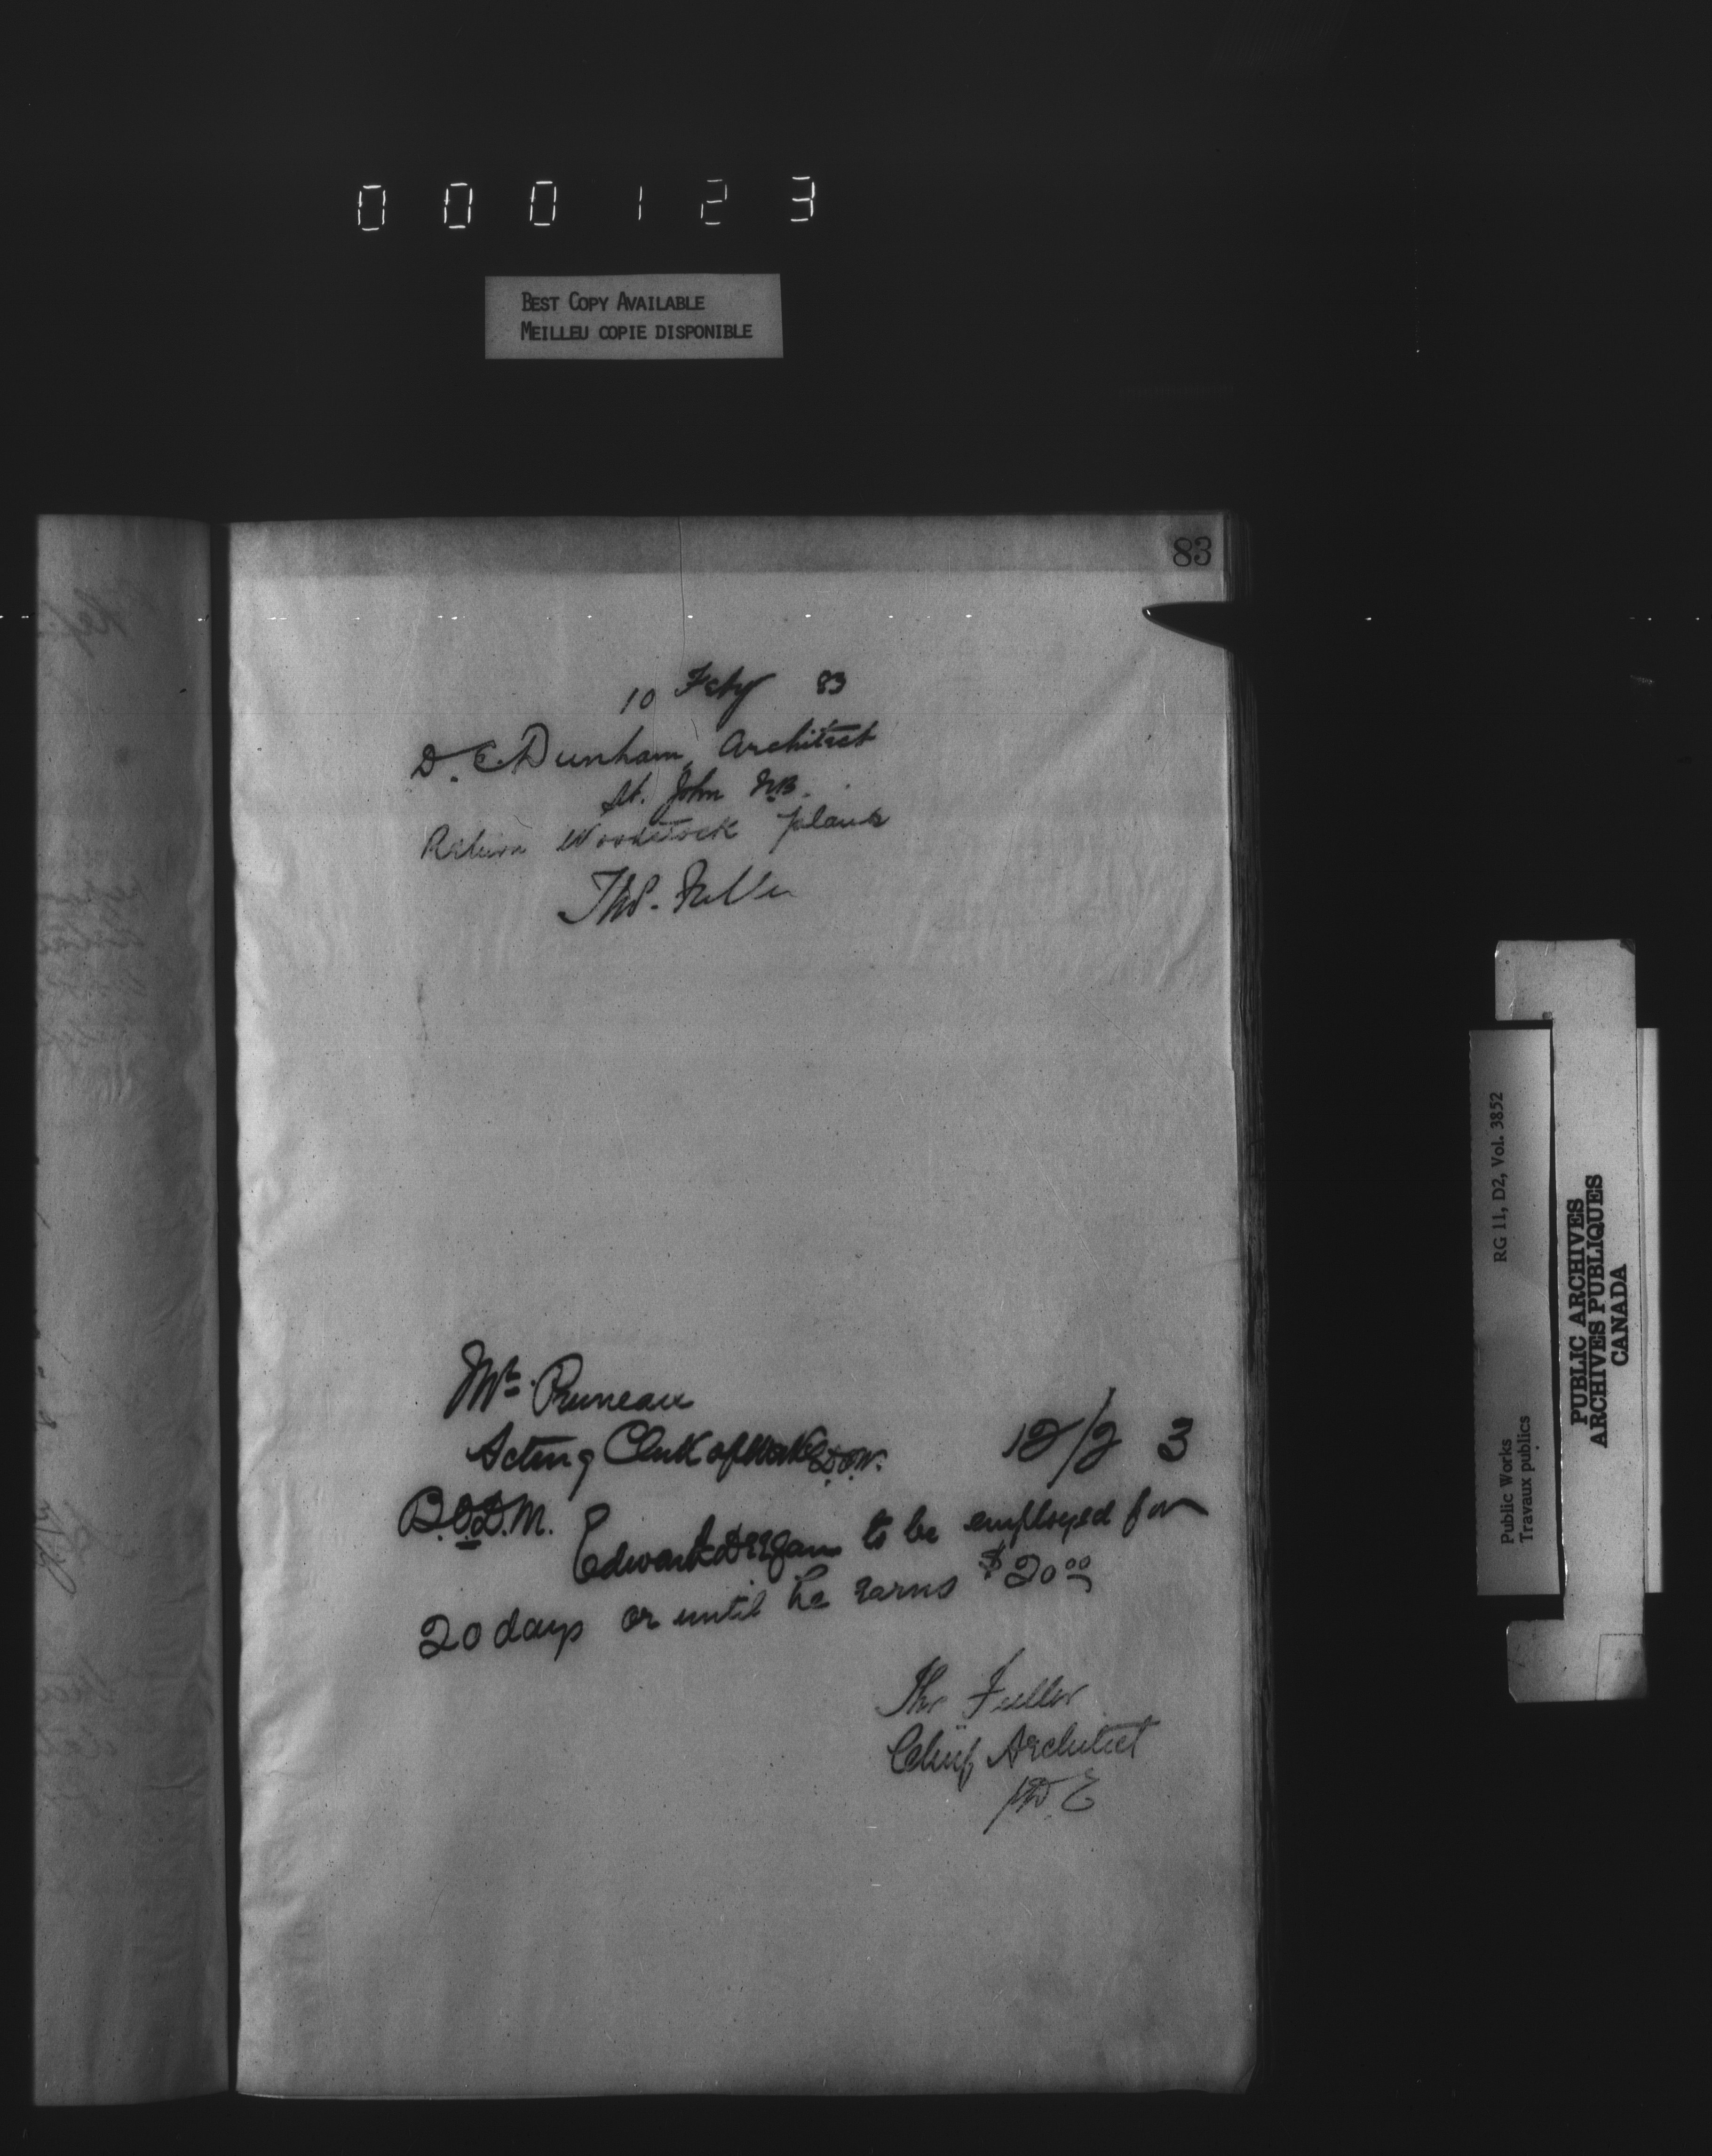 000123
BEST COPY AVAILABLE
MEILLEU COPIE DISPONIBLE
83
10 Feby 83
D. E. Dunham, Architect
St. John N.B.
Return Woodstock plans
Thos. Fuller
Mr. Pruneau
Acting Clerk of Works
12/2 3
B.O.D.M.
Edward to be employed for
20 days or until he earns $20.00
Thos Fuller
Chief Architect
D E
Public Works RG 11, D2, Vol. 3852
Travaux publics
PUBLIC ARCHIVES
ARCHIVES PUBLIQUES
CANADA